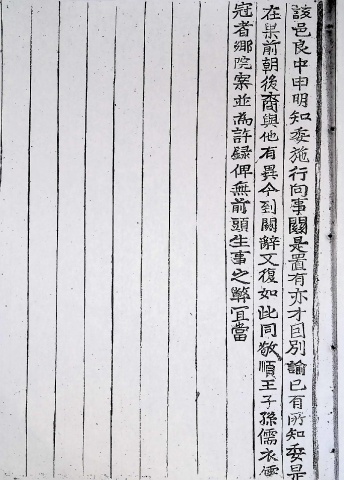 該邑良中申明知委施行向事關是置有亦才目別諭已有所知委是
在果前朝後裔與他有異今到關辭文復如此同敬順王子孫儒衣儒
冠者鄕院案並爲許錄俾無前頭生事之弊宜當